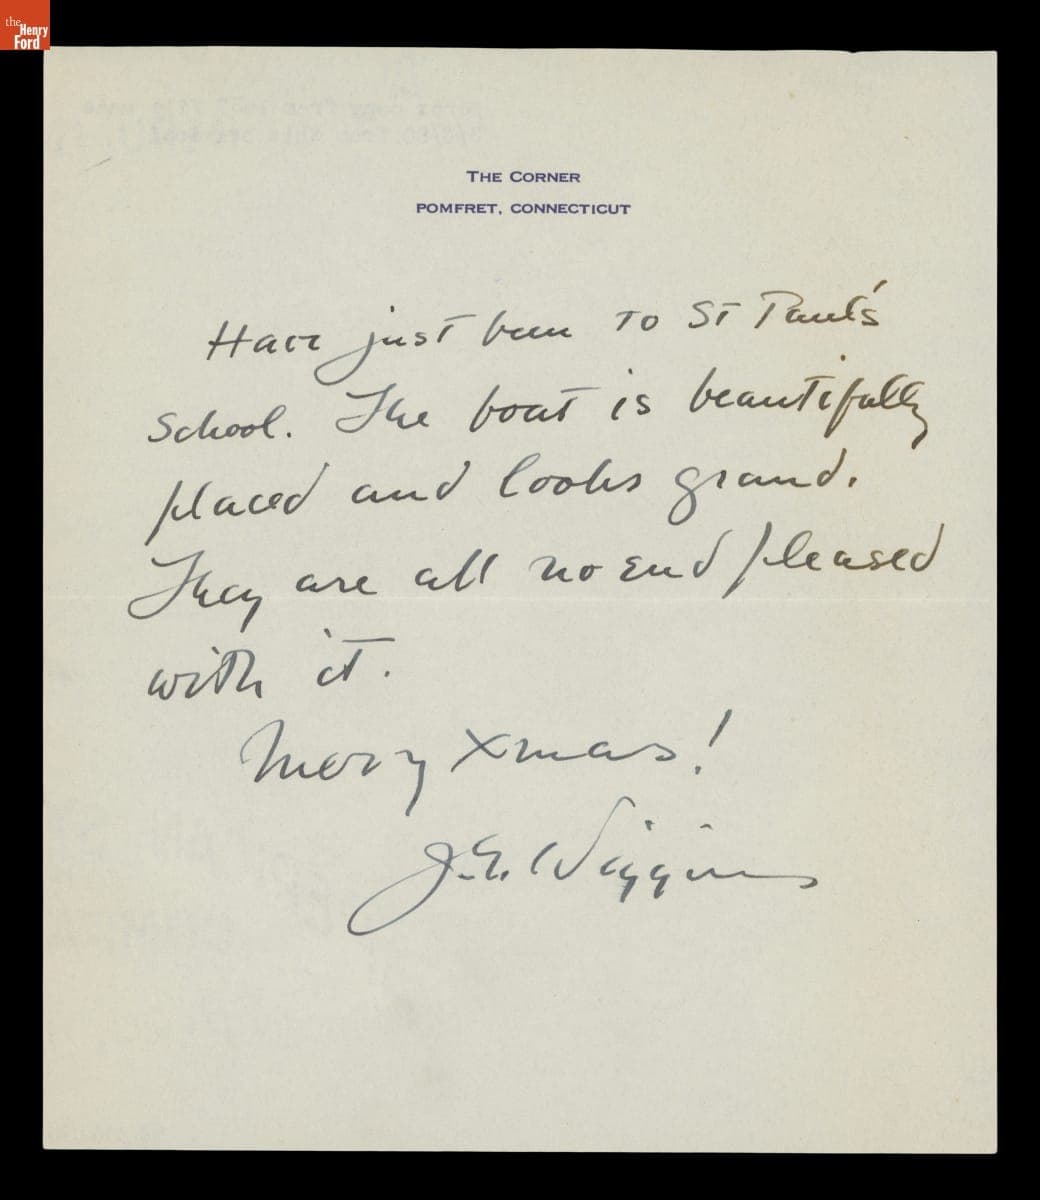 the
Henry
Ford
THE CORNER
POMFRET, CONNECTICUT
Have just been to St Paul's
School. The boat is beautifully
placed and looks grand.
They are all no end pleased
with it.
Merry Xmas!
J. E. Wiggins